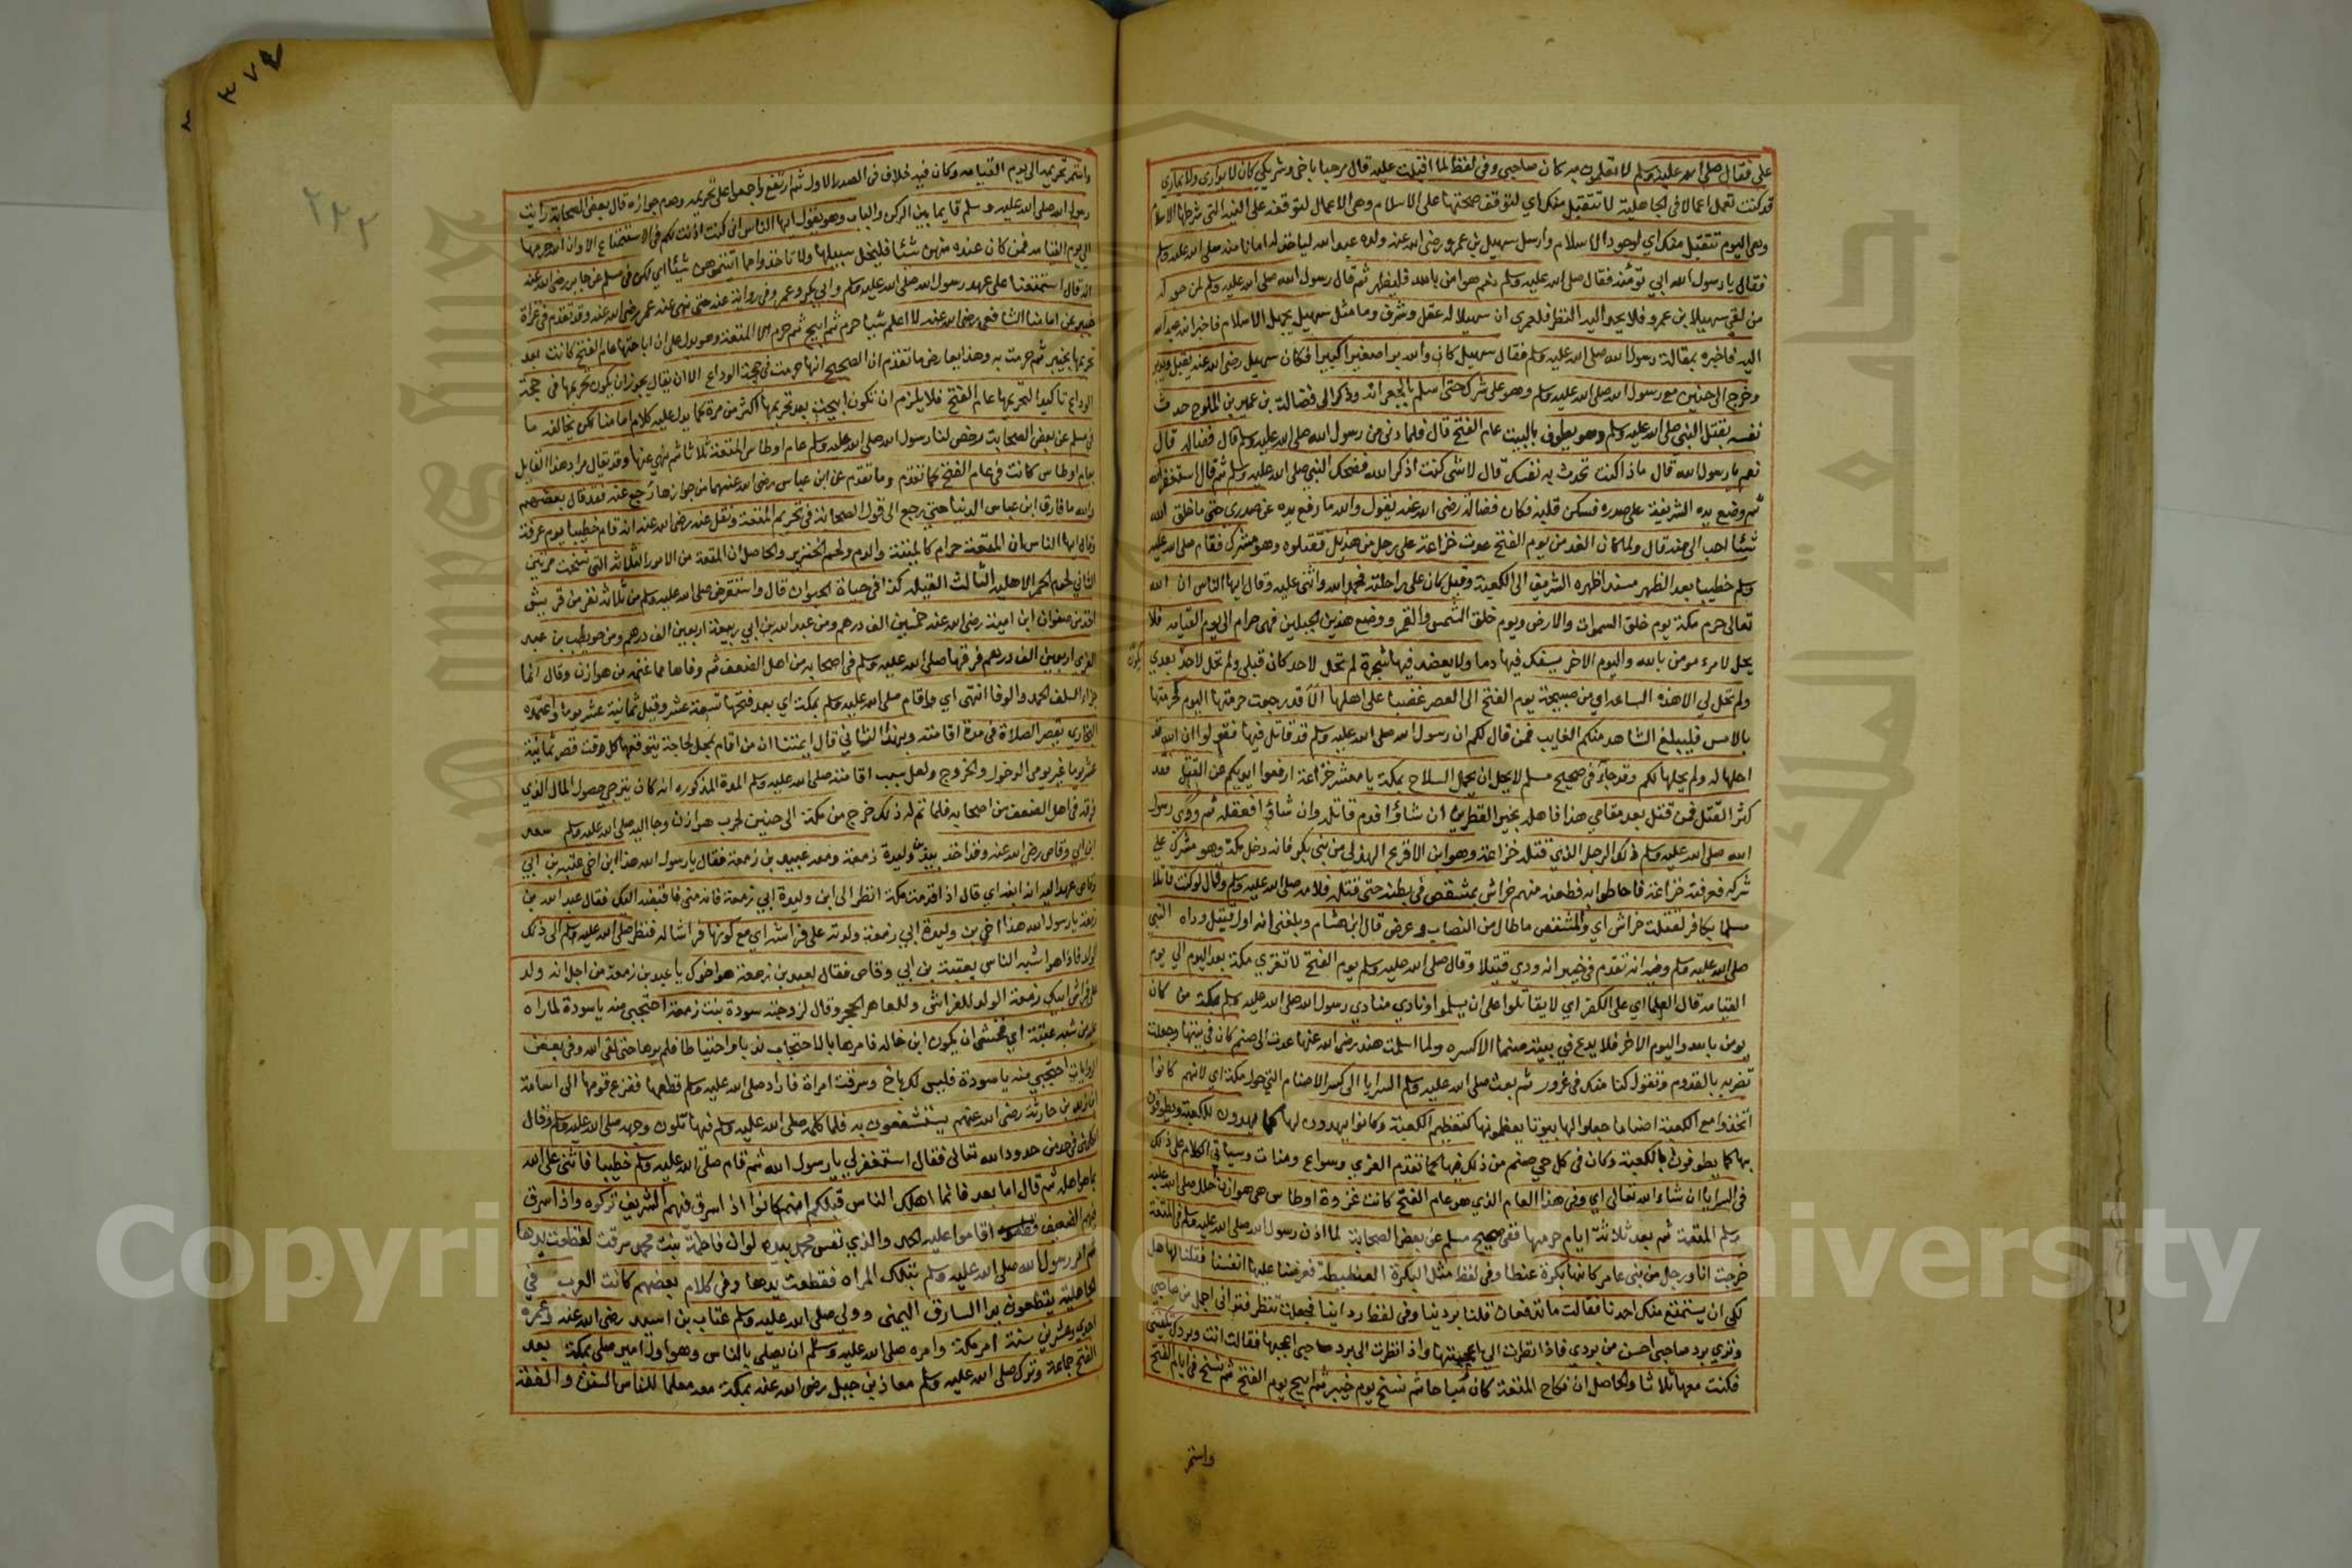 على فقال صلى الله عليه وسلم لا تعلموني به كان صاحبي وفي لفظ لما اقبلت عليه قال مرحبا باخي وشريكي كان لا يواري ولا يماري
قد كنت تعمل اعمالا في الجاهلية لا تتقبل منك اي لتوقف صحتها على الاسلام وهي الاعمال لتوقفه على النية التي شرطها الاسلام
وهي اليوم تتقبل منك اي لوجود الاسلام وارسل سهيل بن عمرو رضي الله عنه ولده عبد الله لياخذ له امانا منه صلى الله عليه وسلم
فقال يا رسول الله ابي تؤمنه فقال صلى الله عليه وسلم نعم هو امن بالله فليظهر ثم قال رسول الله صلى الله عليه وسلم لمن حوله
من لقي سهيلا بن عمرو فلا يحد اليه النظر فلعمري ان سهيلا له عقل وشرف وما مثل سهيل يجهل الاسلام فاخبر ابنه عبد الله
اليه فاخبره بمقالة رسول الله صلى الله عليه وسلم فقال سهيل كان والله برا صغيرا كبيرا فكان سهيل رضي الله عنه يقبل ويدبر
وخرج الى حنين مع رسول الله صلى الله عليه وسلم وهو على شركه حتى اسلم بالجعرانه وذكر الى فضالة بن عمير بن الملوح حدث
نفسه بقتل النبي صلى الله عليه وسلم وهو يطوف بالبيت عام الفتح قال فلما دنى من رسول الله صلى الله عليه وسلم قال فضاله قال
نعم يا رسول الله قال ماذا كنت تحدث به نفسك قال لا شي كنت اذكر الله فضحك النبي صلى الله عليه وسلم ثم قال استغفر الله
ثم وضع يده الشريفة على صدره فسكن قلبه فكان فضالة رضي الله عنه يقول والله ما رفع يده عن صدري حتى ما خلق الله
شيئا احب الي منه قال ولما كان الغد من يوم الفتح عدت خزاعة على رجل من هذيل فقتلوه وهو مشرك فقام صلى الله عليه
وسلم خطيبا بعد الظهر مسندا ظهره الشريف الى الكعبة وقيل كان على راحلته فحمد الله واثنى عليه وقال ايها الناس ان الله
تعالى حرم مكة يوم خلق السموات والارض ويوم خلق الشمس والقمر ووضع هذين الجبلين فهي حرام الى يوم القيامه فلا
يحل لامرء مومن بالله واليوم الاخر يسفك فيها دما ولا يعضد فيها شجرة لم تحل لاحد كان قبلي ولم تحل لاحد بعدي
ولم تحل لي الا هذه الساعه اي من صبيحة يوم الفتح الى العصر غضبا على اهلها الا قد رجعت حرمتها اليوم كحرمتها
بالامس فليبلغ الشاهد منكم الغايب فمن قال لكم ان رسول الله صلى الله عليه وسلم قد قاتل فيها فقولوا ان الله قد
احلها له ولم يحلها لكم وقد جاء في صحيح مسلم لا يحل ان يحمل السلاح بمكة يا معشر خزاعة ارفعوا ايديكم عن القتل فقد
كثر القتل فمن قتل بعد مقامي هذا فاهله بخير النظرين ان شاؤا فدم قاتله وان شاؤا فعقله ثم ودى رسول
الله صلى الله عليه وسلم ذلك الرجل الذي قتلته خزاعة وهو ابن الاقرع الهذلي من بني بكر فانه دخل مكة وهو مشرك على
شركه فعرفته خزاعة فاحاطوا به فطعنه منهم خراش بمشقص في بطنه حتى قتله فلامه صلى الله عليه وسلم وقال لو كنت قاتلا
مسلما بكافر لقتلت خراش اي والمشقص ما طال من النصاب وعرض قال ابن هشام وبلغني انه اول قتيل وداه النبي
صلى الله عليه وسلم وفيه انه تقدم في خيبر انه ودي قتيلا وقال صلى الله عليه وسلم يوم الفتح لا تغزى مكة بعد اليوم الى يوم
القيامه قال العلما اي على الكفر اي لا يقاتلوا على ان يسلموا ونادى منادي رسول الله صلى الله عليه وسلم بمكة من كان
يومن بالله واليوم الاخر فلا يدع في بيته صنما الا كسره ولما اسلمت هند رضي الله عنها عمدت الى صنم كان في بيتها وجعلت
تضربه بالقدوم وتقول كنا منك في غرور ثم بعث صلى الله عليه وسلم السرايا الى كسر الاصنام التي حول مكة اي لانهم كانوا
اتخذوا مع الكعبة اصناما جعلوا لها بيوتا يعظمونها كتعظيم الكعبة وكانوا يهدون لها كما يهدون للكعبة ويطوفون
بها كما يطوفون بالكعبة وكان في كل حي صنم من ذلك فيها كما تقدم العزى وسواع ومنات وسياتي الكلام على ذلك
في السرايا ان شاء الله تعالى اي وفي هذا العام الذي هو عام الفتح كانت غزوة اوطاس هي هوازن حلل صلى الله عليه
وسلم المتعة ثم بعد ثلاثة ايام حرمها ففي صحيح مسلم عن بعض الصحابة لما اذن رسول الله صلى الله عليه وسلم في المتعة
خرجت انا ورجل من بني عامر كانها بكرة عنطا وفي لفظ مثل البكرة العنطنطة فعرضنا عليها انفسنا فقلنا لها هل
لكي ان يستمتع منك احدنا فقالت ما تدفعان قلنا بردينا وفي لفظ رداينا فجعلت تنظر فتراني اجمل من صاحبي
وترى برد صاحبي احسن من بردي فاذا نظرت الي اعجبتها واذا نظرت الى برد صاحبي اعجبها فقالت انت وبردك تكفيني
فكنت معها ثلاثا والحاصل ان نكاح المتعة كان مباحا ثم نسخ يوم خيبر ثم ابيح يوم الفتح ثم نسخ في ايام الفتح
واستمر
واستمر تحريمه الى يوم القيامه وكان فيه خلاف في الصدر الاول ثم ارتفع واجمعوا على تحريمه وعدم جوازه قال بعض الصحابة رايت
رسول الله صلى الله عليه وسلم قايما بين الركن والباب وهو يقول ايها الناس اني كنت اذنت لكم في الاستمتاع الا وان الله حرمها
الى يوم القيامه فمن كان عنده منهن شيئا فليخل سبيلها ولا تاخذوا مما اتيتموهن شيئا اي لكن في مسلم عن جابر رضي الله عنه
انه قال استمتعنا على عهد رسول الله صلى الله عليه وسلم وابي بكر وعمر وفي رواية عنه حتى نهى عنه عمر رضي الله عنه وقد تقدم في غزاة
خيبر عن امامنا الشافعي رضي الله عنه لا اعلم شيا حرم ثم ابيح ثم حرم الا المتعة وهو يدل على ان اباحتها عام الفتح كانت بعد
تحريمها بخيبر ثم حرمت به وهذا يعارض ما تقدم ان الصحيح انها حرمت في حجة الوداع الا ان يقال يجوز ان يكون تحريمها في حجة
الوداع تاكيدا لتحريمها عام الفتح فلا يلزم ان تكون ابيحت بعد تحريمها اكثر من مرة كما يدل عليه كلام امامنا لكن يخالفه ما
في مسلم عن بعض الصحابة رخص لنا رسول الله صلى الله عليه وسلم عام اوطاس المتعة ثلاثا ثم نهى عنها وقد يقال مراد هذا القايل
بعام اوطاس كانت في عام الفتح كما تقدم وما تقدم عن ابن عباس رضي الله عنهما من جوازها رجع عنه فقد قال بعضهم
والله ما فارق ابن عباس الدنيا حتى رجع الى قول الصحابة في تحريم المتعة ونقل عنه رضي الله عنه انه قام خطيبا يوم عرفة
وقال ايها الناس ان المتعة حرام كالميتة والدم ولحم الخنزير والحاصل ان المتعة من الامور الثلاثة التي نسخت مرتين
الثاني لحوم الحمر الاهلية الثالث القبلة كذا في حياة الحيوان قال واستقرض صلى الله عليه وسلم من ثلاثة نفر من قريش
اخذ من صفوان ابن امية رضي الله عنه خمسين الف درهم ومن عبد الله بن ابي ربيعة اربعين الف درهم ومن حويطب بن عبد
العزى اربعين الف درهم فرقها صلى الله عليه وسلم في اصحابه من اهل الضعف ثم وفاها مما غنمه من هوازن وقال انما
جزاء السلف الحمد والوفا انتهى اي واقام صلى الله عليه وسلم بمكة اي بعد فتحها تسعة عشر وقيل ثمانية عشر يوما واعتمده
البخاري يقصر الصلاة في مدة اقامته وبهذا الثاني قال ايمتنا ان من اقام بمحل لحاجة يتوقعها كل وقت قصر ثمانية
عشر يوما غير يومي الدخول والخروج ولعل سبب اقامته صلى الله عليه وسلم المدة المذكوره انه كان يترجى حصول المال الذي
فرقه في اهل الضعف من اصحابه فلما تم له ذلك خرج من مكة الى حنين لحرب هوازن وجا اليه صلى الله عليه وسلم سعد
ابن ابي وقاص رضي الله عنه وقد اخذ بيد ابن وليدة زمعة ومعه عبد بن زمعة فقال يا رسول الله هذا ابن اخي عتبة بن ابي
وقاص عهد الي انه ابنه اي قال اذا قدمت مكة انظر الى ابن وليدة ابي زمعة فانه مني فاقبضه اليك فقال عبد الله بن
زمعة يا رسول الله هذا اخي بن وليدة ابي زمعة ولدته على فراشه اي مع كونها فراشا له فنظر صلى الله عليه وسلم الى ذلك
الولد فاذا هو اشبه الناس بعتبة بن ابي وقاص فقال لعبد بن زمعة هو اخوك يا عبد بن زمعة من اجل انه ولد
على فراش ابيك زمعة الولد للفراش وللعاهر الحجر وقال لزوجته سودة بنت زمعة احتجبي منه يا سودة لما راه
عليه من شبه عتبة اي فخشى ان يكون ابن خاله فامرها بالاحتجاب ندبا واحتياطا فلم يرها حتى لقي الله وفي بعض
الروايات احتجبي منه يا سودة فليس لك باخ وسرقت امراة فاراد صلى الله عليه وسلم قطعها ففزع قومها الى اسامة
ابن زيد بن حارثة رضي الله عنهم يستشفعون به فلما كلمه صلى الله عليه وسلم فيها تلون وجهه صلى الله عليه وسلم وقال
اتكلمني في حد من حدود الله تعالى فقال استغفر لي يا رسول الله ثم قام صلى الله عليه وسلم خطيبا فاثنى على الله
بما هو اهله ثم قال اما بعد فانما اهلك الناس قبلكم انهم كانوا اذا سرق فيهم الشريف تركوه واذا سرق
فيهم الضعيف اقاموا عليه الحد والذي نفس محمد بيده لو ان فاطمة بنت محمد سرقت لقطعت يدها
ثم امر رسول الله صلى الله عليه وسلم بتلك المراه فقطعت يدها وفي كلام بعضهم كانت العرب في
الجاهلية يقطعون يد السارق اليمنى وولى صلى الله عليه وسلم عتاب بن اسيد رضي الله عنه وعمره
احدى وعشرين سنة امر مكة وامره صلى الله عليه وسلم ان يصلي بالناس وهو اول امير صلى بمكة بعد
الفتح جماعة وترك صلى الله عليه وسلم معاذ بن جبل رضي الله عنه بمكة معه معلما للناس السنن والفقه
Copyright © King Saud University